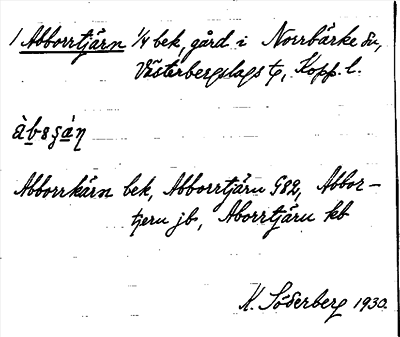 1 Abborrtjärn 1/4 bek, gård i Norrbärke sn,
Västerbergslags tg, Kopp. l.
Abborrkärn bek, Abborrtjärn G82, Abbor-
tjern jb, Aborrtjärn kb
K. Söderberg 1930.